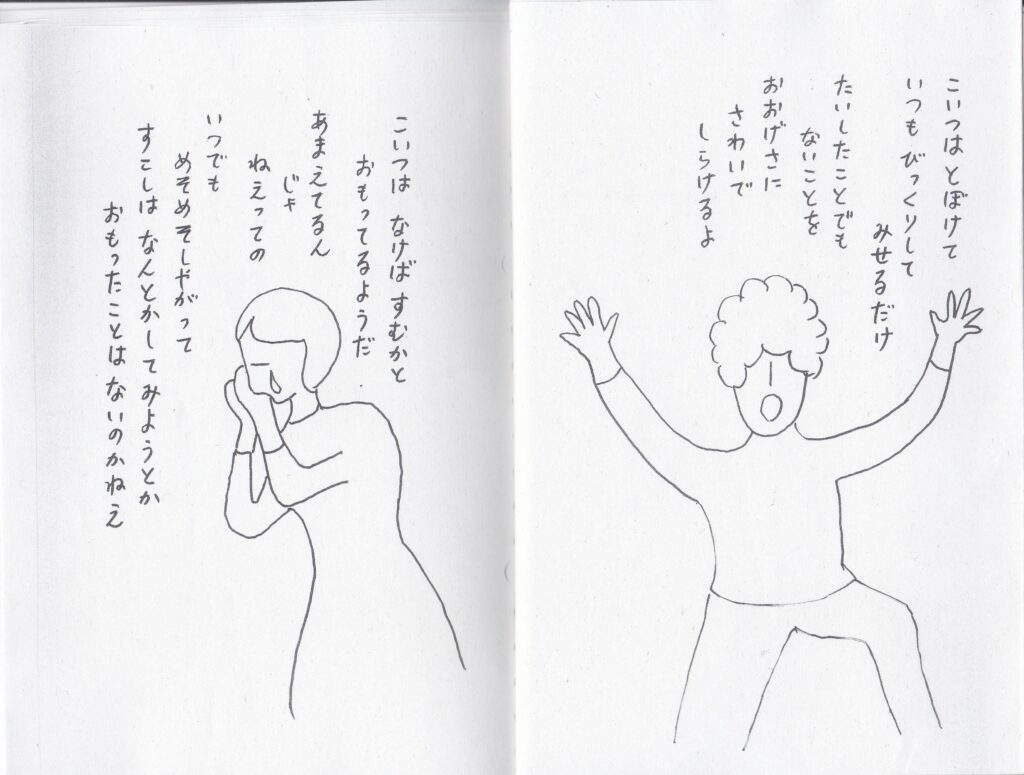 こいつは とぼけて
いつも びっくりして
みせるだけ
たいしたことでも
ないことを
おおげさに
さわいで
しらけるよ
こいつは なけば すむかと
おもってるようだ
あまえてるん
じゃ
ねえっての
いつでも
めそめそしやがって
すこしは なんとかしてみようとか
おもったことは ないのかねえ